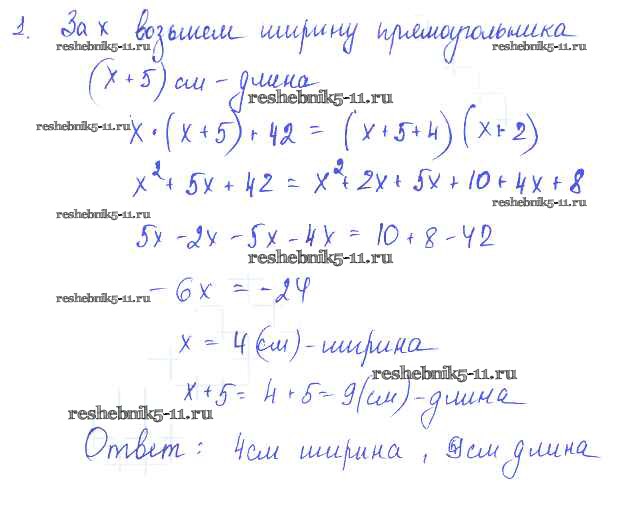 1. За x возьмем ширину прямоугольника
reshebnik5-11.ru reshebnik5-11.ru
(x + 5) см - длина
reshebnik5-11.ru
reshebnik5-11.ru
x · (x + 5) + 42 = (x + 5 + 4) (x + 2)
x² + 5x + 42 = x² + 2x + 5x + 10 + 4x + 8
reshebnik5-11.ru
reshebnik5-11.ru
5x - 2x - 5x - 4x = 10 + 8 - 42
reshebnik5-11.ru
- 6x = - 24
reshebnik5-11.ru
x = 4 (см) - ширина
reshebnik5-11.ru
x + 5 = 4 + 5 = 9 (см) - длина
reshebnik5-11.ru
Ответ: 4см ширина, см длина